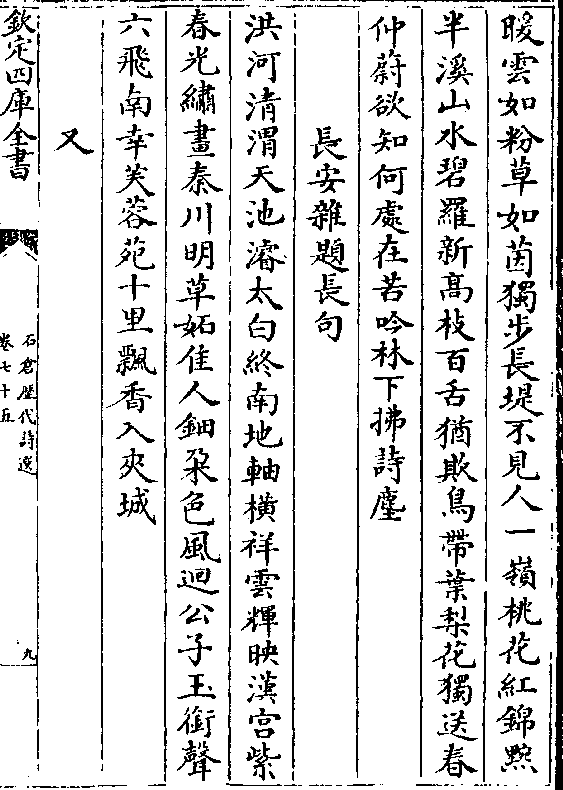 暖雲如粉草如茵獨步長堤不見人一嶺桃花紅錦黦
半溪山水碧羅新高枝百舌猶欺鳥帶葉梨花獨送春
仲蔚欲知何處在苦吟林下拂詩塵
長安雜題長句
洪河清渭天池濬太白終南地軸橫祥雲輝映漢宮紫
春光繡畫秦川明草妬佳人鈿朶色風迴公子玉銜聲
六飛南幸芙蓉苑十里飄香入夾城
又
欽定四庫全書
石倉歷代詩選
卷七十五
九